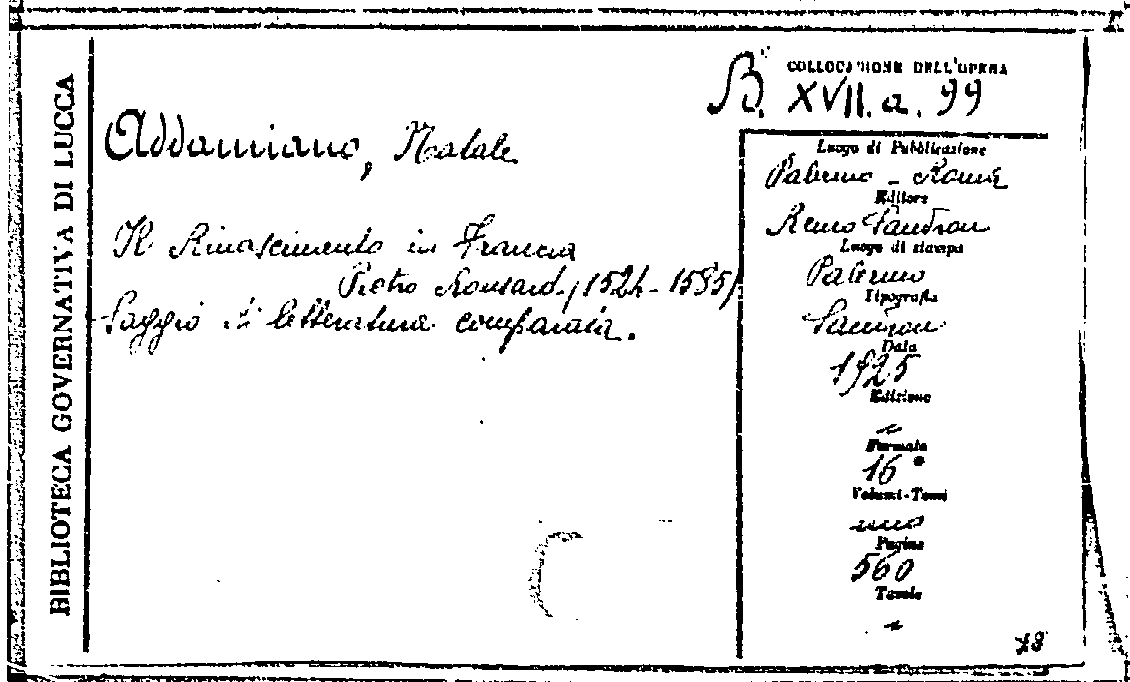 BIBLIOTECA GOVERNATIVA DI LUCCA
Addamiano, Natale
Il Rinascimento in Francia
Pietro Ronsard (1524-1585)
Saggio di letteratura comparata.
COLLOCAZIONE DELL'OPERA
B. XVII. a. 99
Luogo di Pubblicazione
Palermo - Roma
Editore
Remo Sandron
Luogo di stampa
Palermo
Tipografia
Sandron
Data
1925
Edizione
-
Formato
16°
Volumi-Tomi
uno
Pagine
560
Tavole
-